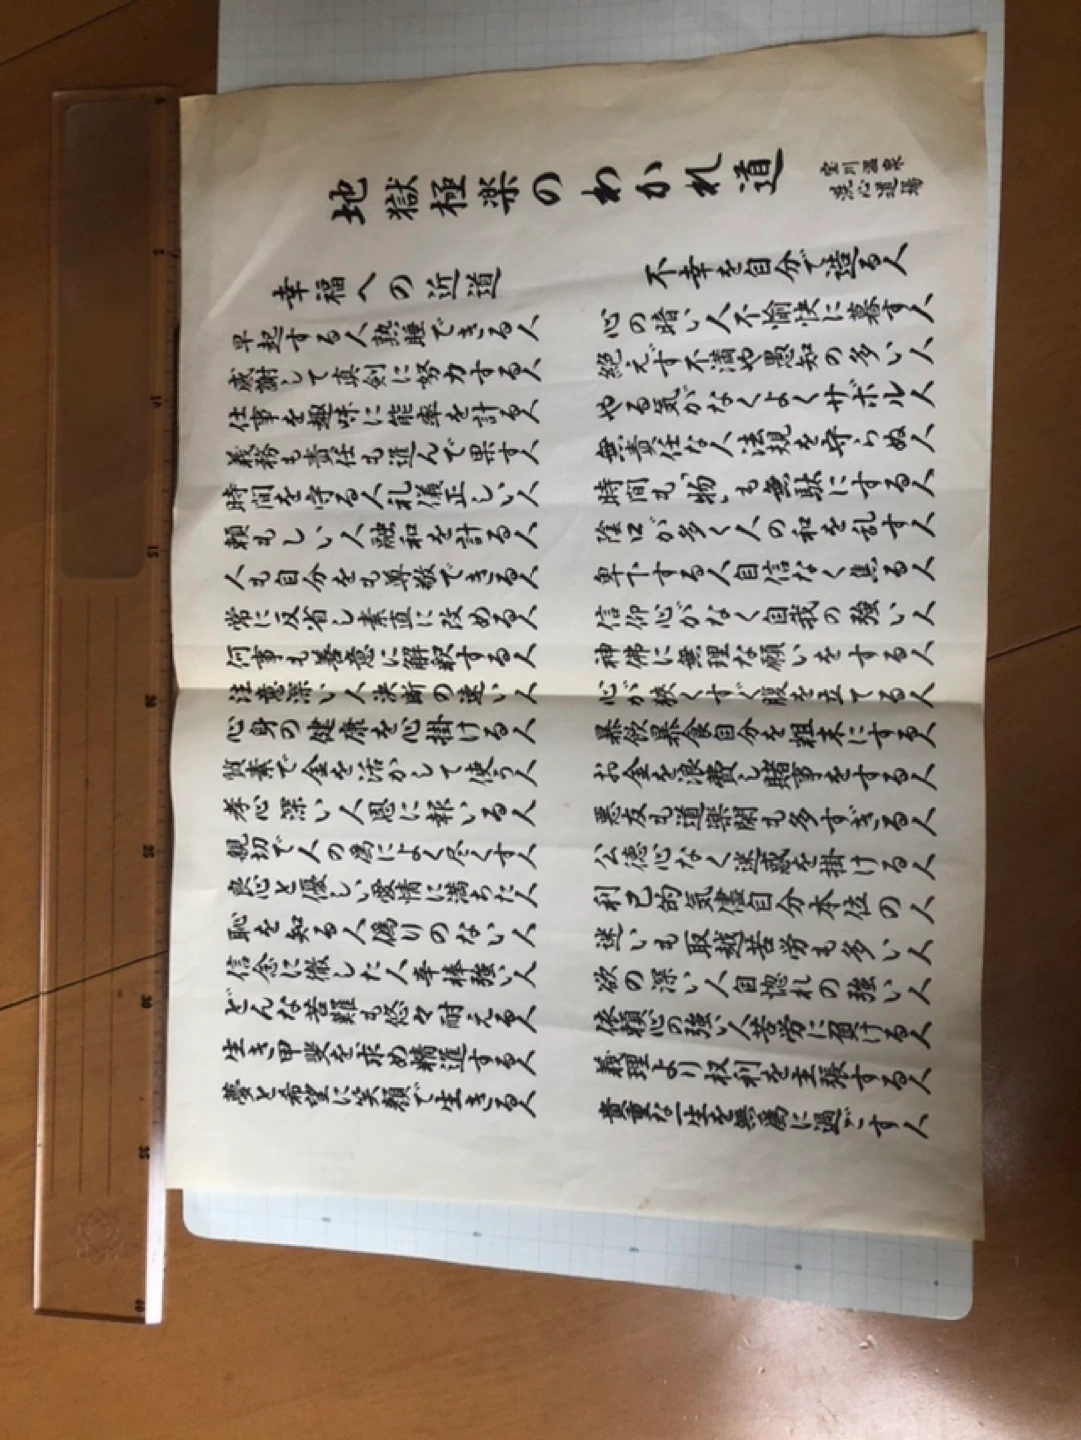 地獄極楽のわかれ道
宝川温泉
洗心道場
幸福への近道
早起する人熟睡できる人
感謝して真剣に努力する人
仕事を趣味に能率を計る人
義務も責任も進んで果す人
時間を守る人礼儀正しい人
頼もしい人融和を計る人
人も自分をも尊敬できる人
常に反省し素直に改める人
何事も善意に解釈する人
注意深い人決断の速い人
心身の健康を心掛ける人
質素で金を活かして使う人
孝心深い人恩に報いる人
親切で人の為によく尽くす人
良心と優しい愛情に満ちた人
恥を知る人偽りのない人
信念に徹した人辛棒強い人
どんな苦難も悠々耐える人
生き甲斐を求め精進する人
夢と希望に笑顔で生きる人
不幸を自分で造る人
心の暗い人不愉快に暮す人
絶えず不満や愚知の多い人
やる気がなくよくサボル人
無責任な人法規を守らぬ人
時間も物も無駄にする人
陰口が多く人の和を乱す人
卑下する人自信なく焦る人
信仰心がなく自我の強い人
神佛に無理な願いをする人
心が狭くすぐ腹を立てる人
暴飲暴食自分を粗末にする人
お金を浪費し賭事をする人
悪友も道楽閑も多すぎる人
公徳心なく迷惑を掛ける人
利己的気儘自分本位の人
迷いも取越苦労も多い人
欲の深い人自惚れの強い人
依頼心の強い人苦労に負ける人
義理より权利を主張する人
貴重な一生を無為に過ごす人
0 5 10 15 20 25 30 35 40